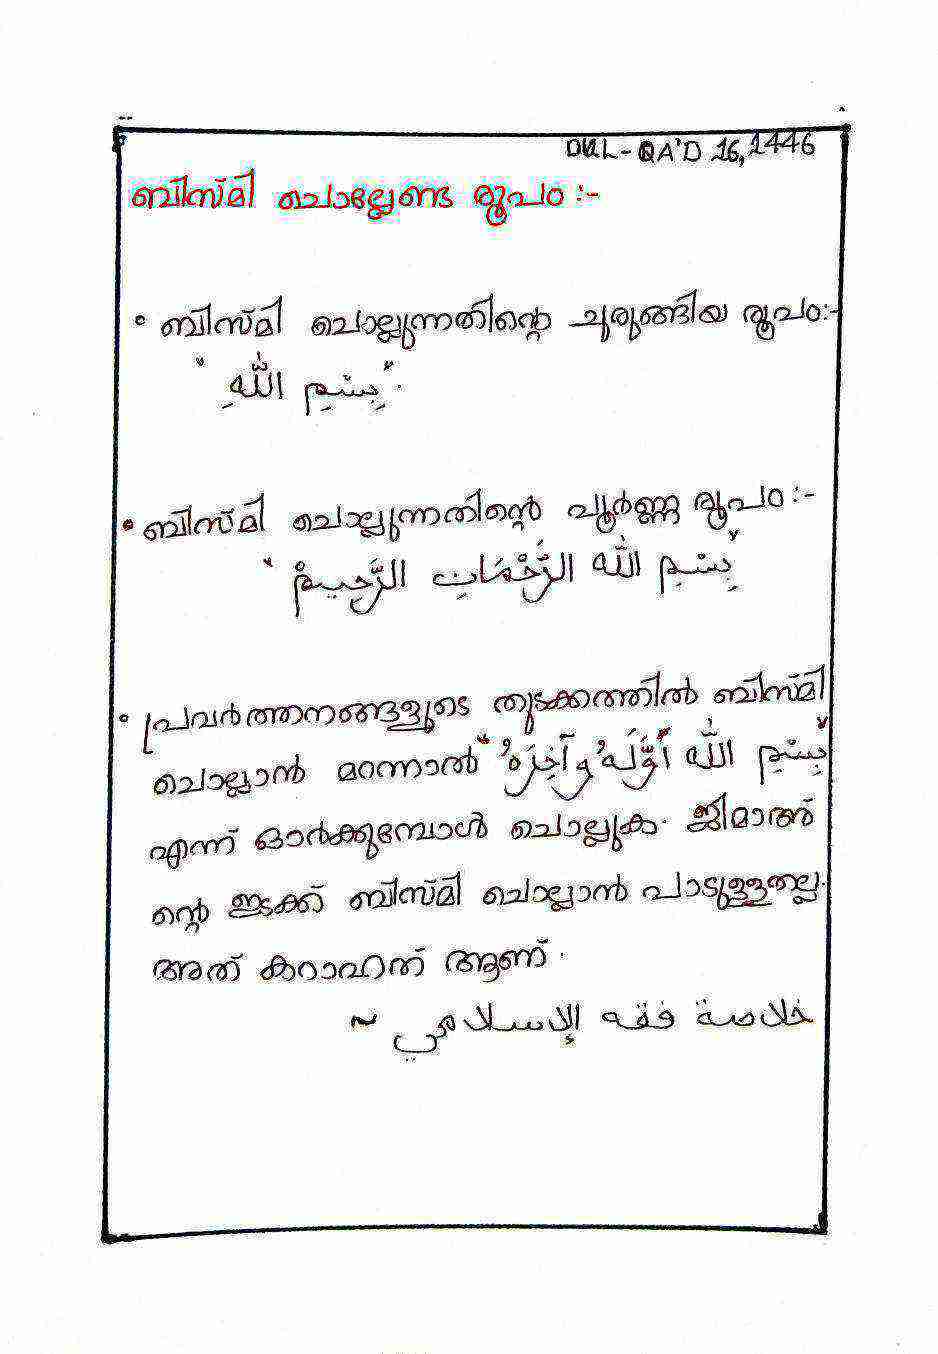 DUL-QA'D 16, 1446
ബിസ്മി ചൊല്ലേണ്ട രൂപം :-
• ബിസ്മി ചൊല്ലുന്നതിന്റെ ചുരുങ്ങിയ രൂപം:-
"بِسْمِ اللّٰهِ".
• ബിസ്മി ചൊല്ലുന്നതിന്റെ പൂർണ്ണ രൂപം :-
"بِسْمِ اللّٰهِ الرَّحْمَانِ الرَّحِيمْ"
• പ്രവർത്തനങ്ങളുടെ തുടക്കത്തിൽ ബിസ്മി
ചൊല്ലാൻ മറന്നാൽ "بِسْمِ اللّٰهِ أَوَّلَهُ وَآخِرَهُ"
എന്ന് ഓർക്കുമ്പോൾ ചൊല്ലുക. ജിമാഅ്
ന്റെ ഇടക്ക് ബിസ്മി ചൊല്ലാൻ പാടുള്ളതല്ല.
അത് കറാഹത് ആണ്.
خلاصة فقه الإسلامي ~